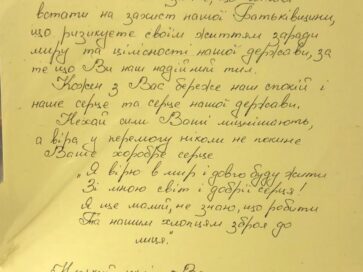 встати на захист нашої Батьківщини,
що ризикуєте своїм життям заради
миру та цілісності нашої держави, за
те що Ви наш надійний тил.
Кожен з Вас береже наш спокій і
наше серце та серце нашої держави.
Нехай сили Ваші міцнішають,
а віра у перемогу ніколи не покине
Ваше хоробре серце
„Я вірю в мир і довго буду жити
Зі мною світ і добрії серця!
Я ще малий, не знаю, що робити
Та нашим хлопцям зброя до
лиця."